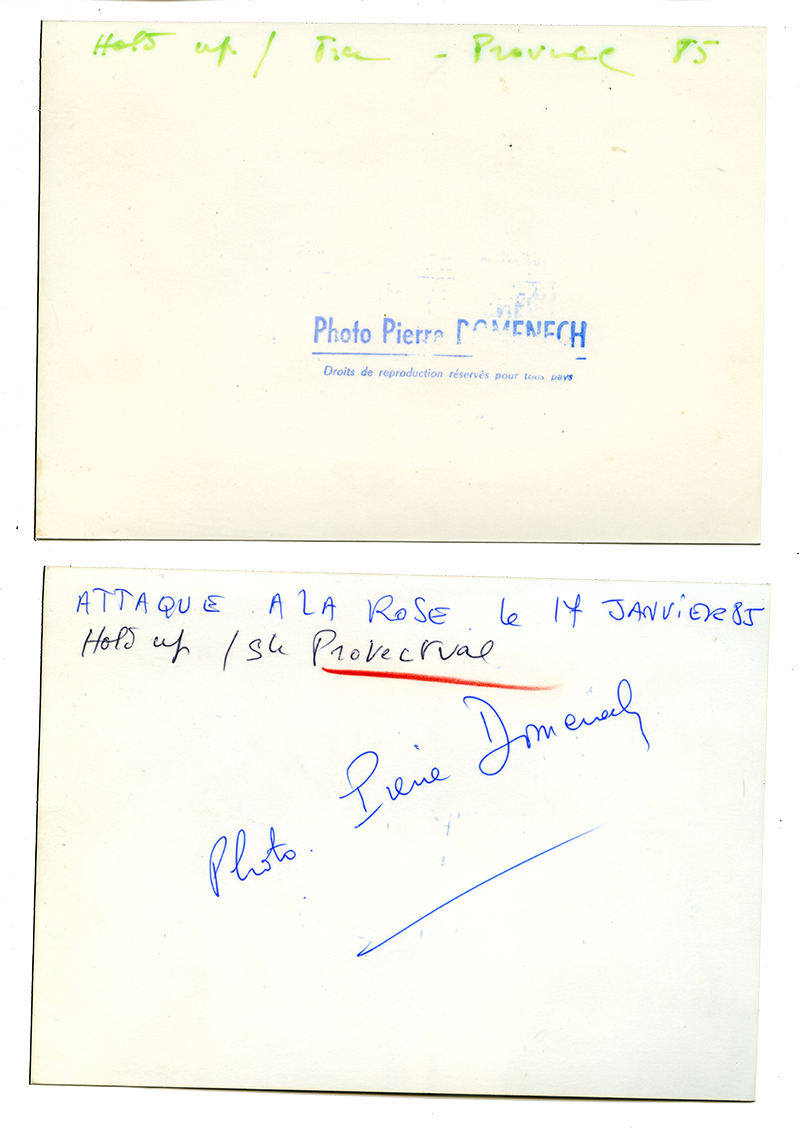 Hold up / - Provence 85
Photo Pierre DOMENECH
Droits de reproduction réservés pour tous pays
ATTAQUE A LA ROSE le 17 JANVIER 85
Hold up / Sté Protecval
Photo. Pierre Domenech